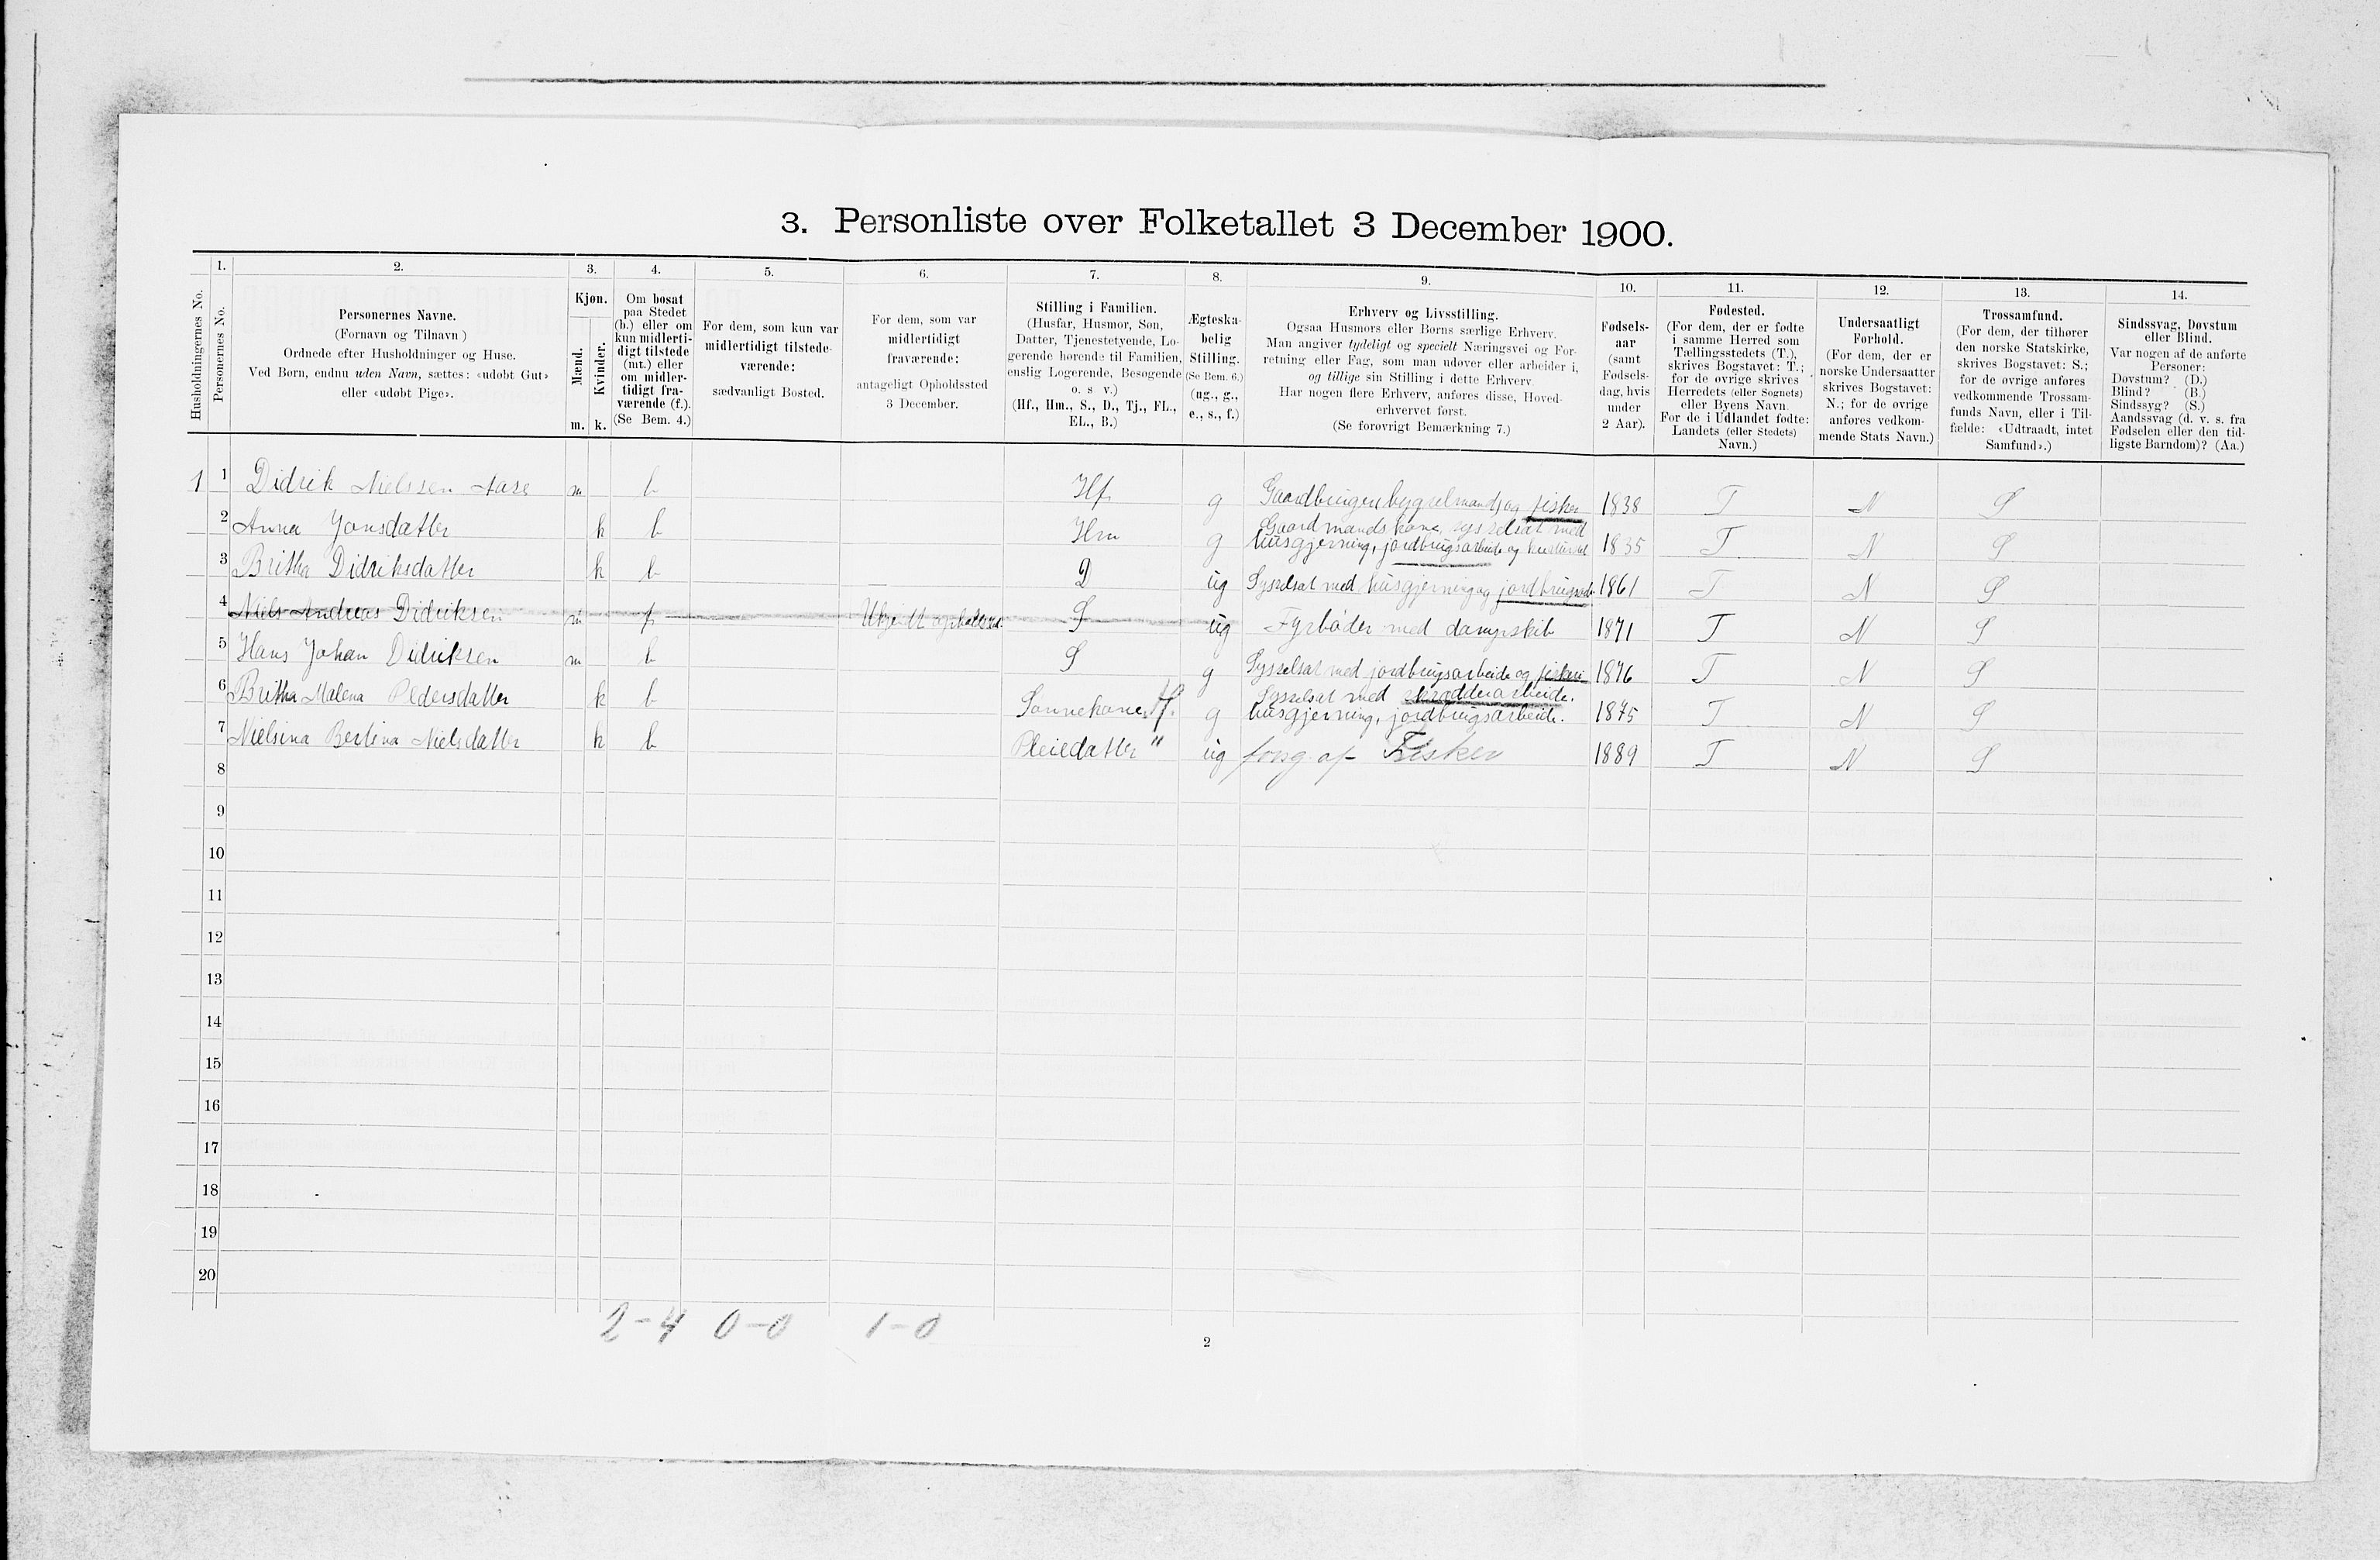 3. Personliste over Folketallet 3 December 1900.
Husholdningernes No.
1.
Personernes No.
2.
Personernes Navne.
(Fornavn og Tilnavn)
Ordnede efter Husholdninger og Huse.
Ved Børn, endnu uden Navn, sættes: «udøbt Gut»
eller «udøbt Pige».
3.
Kjøn.
Mænd.
Kvinder.
m. k.
4.
Om bosat
paa Stedet
(b.) eller om
kun midlerti-
digt tilstede
(mt.) eller
om midler-
tidigt fra-
værende (f.).
(Se Bem. 4.)
5.
For dem, som kun var
midlertidigt tilstede-
værende:
sædvanligt Bosted.
6.
For dem, som var
midlertidigt
fraværende:
antageligt Opholdssted
3 December.
7.
Stilling i Familien.
(Husfar, Husmor, Søn,
Datter, Tjenestetyende, Lo-
gerende hørende til Familien,
enslig Logerende, Besøgende
o. s v.)
(Hf., Hm., S., D., Tj., FL.,
EL., B.)
8.
Ægteska-
belig
Stilling.
(Se Bem. 6.)
(ug., g.,
e., s., f.)
9.
Erhverv og Livsstilling.
Ogsaa Husmors eller Børns særlige Erhverv.
Man angiver tydeligt og specielt Næringsvei og For-
retning eller Fag, som man udøver eller arbeider i,
og tillige sin Stilling i dette Erhverv
Har nogen flere Erhverv, anføres disse, Hoved-
erhvervet først.
(Se forøvrigt Bemærkning 7.)
10.
Fødsels-
aar
(samt
Fødsels-
dag, hvis
under
2 Aar).
11.
Fødested.
(For dem, der er fødte
i samme Herred som
Tællingsstedets (T.),
skrives Bogstavet: T.;
for de øvrige skrives
Herredets (eller Sognets)
eller Byens Navn.
For de i Udlandet fødte:
Landets (eller Stedets)
Navn.)
12.
Undersaatligt
Forhold.
(For dem, der er
norske Undersaatter
skrives Bogstavet:
N.; for de øvrige
anføres vedkom-
mende Stats Navn.)
13.
Trossamfund.
(For dem, der tilhører
den norske Statskirke,
skrives Bogstavet: S.;
for de øvrige anføres
vedkommende Trossam-
funds Navn, eller i Til-
fælde: «Udtraadt, intet
Samfund».)
14.
Sindssvag, Døvstum
eller Blind.
Var nogen af de anførte
Personer:
Døvstum? (D.)
Blind? (B.)
Sindssyg? (S.)
Aandssvag (d. v. s. fra
Fødselen eller den tid-
ligste Barndom)? (Aa.)
1 1 Didrik Nielssen Aase m b Hf. g Gaardbruger bygselmand og fisker 1838 T N S
2 Anna Jonsdatter k b Hm g Gaardmandskone, sysselsat med
husgjerning, jordbrugsarbeide og 1835 T N S
3 Britha Didriksdatter k b D ug Sysselsat med husgjerning og 1861 T N S
4 Niels Andreas Didriksen m f S ug Fyrbøder med dampskib 1871 T N S
5 Hans Johan Didriksen m b S g Sysselsat med jordbrugsarbeide og fiskeri 1876 T N S
6 Britha Malena Pedersdatter k b Sønnekone g Sysselsat med skrædderarbeide.
husgjerning, jordbrugsarbeide. 1875 T N S
7 Nielsina Bertina Nielsdatter k b Pleiedatter " ug forsg. af Fisker 1889 T N S
8
9
10
11
12
13
14
15
16
17
18
19
20
2-4 0-0 1-0
2